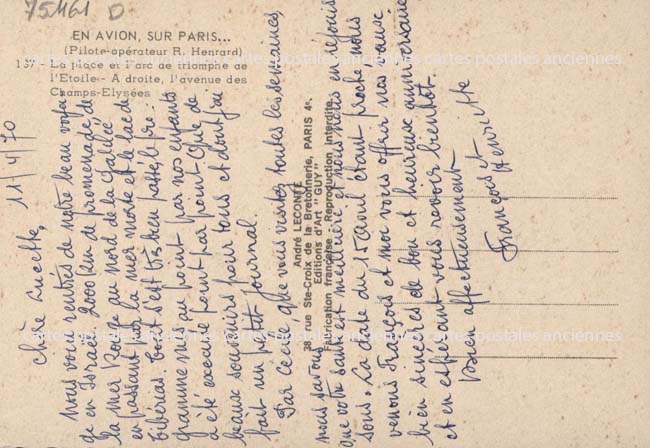 75461 D
EN AVION, SUR PARIS...
(Pilote-opérateur R. Henrard)
137 - La place et l'arc de triomphe de
l'Etoile - A droite, l'avenue des
Champs-Elysées
11/4/70
Chère Lucette,
Nous voici rentrés de notre beau voya
ge en Israël. 2000 km de promenade de
la mer Rouge au nord de la Galilée
en passant par la mer morte et le lac de
tibérias. tout s'est très bien passé, le pro-
gramme mis au point par nos enfants
a été exécuté point par point. Que de
beaux souvenirs pour tous et dont j'ai
fait un petit journal.
Par Cécile que vous visitez toutes les semaines,
nous savons
que votre santé est meilleure et nous nous en réjouis
sons. La date du 15 avril étant proche nous
venons François et moi vous offrir nos vœux
bien sincères de bon et heureux anniversaire
et en espérant vous revoir bientôt.
bien affectueusement
François et
Henriette
André LECONTE
38, rue Ste-Croix de la Bretonnerie, PARIS 4e
Editions d'Art "GUY"
Fabrication française - Reproduction interdite
cartes postales anciennes